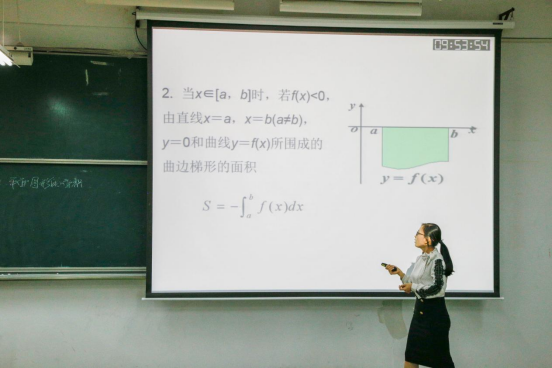 09:53:54
2. 当x∈[a，b]时，若f(x)<0，
由直线x=a，x=b(a≠b)，
y=0和曲线y=f(x)所围成的
曲边梯形的面积
S = -∫_a^b f(x)dx
y
o a b x
y = f(x)